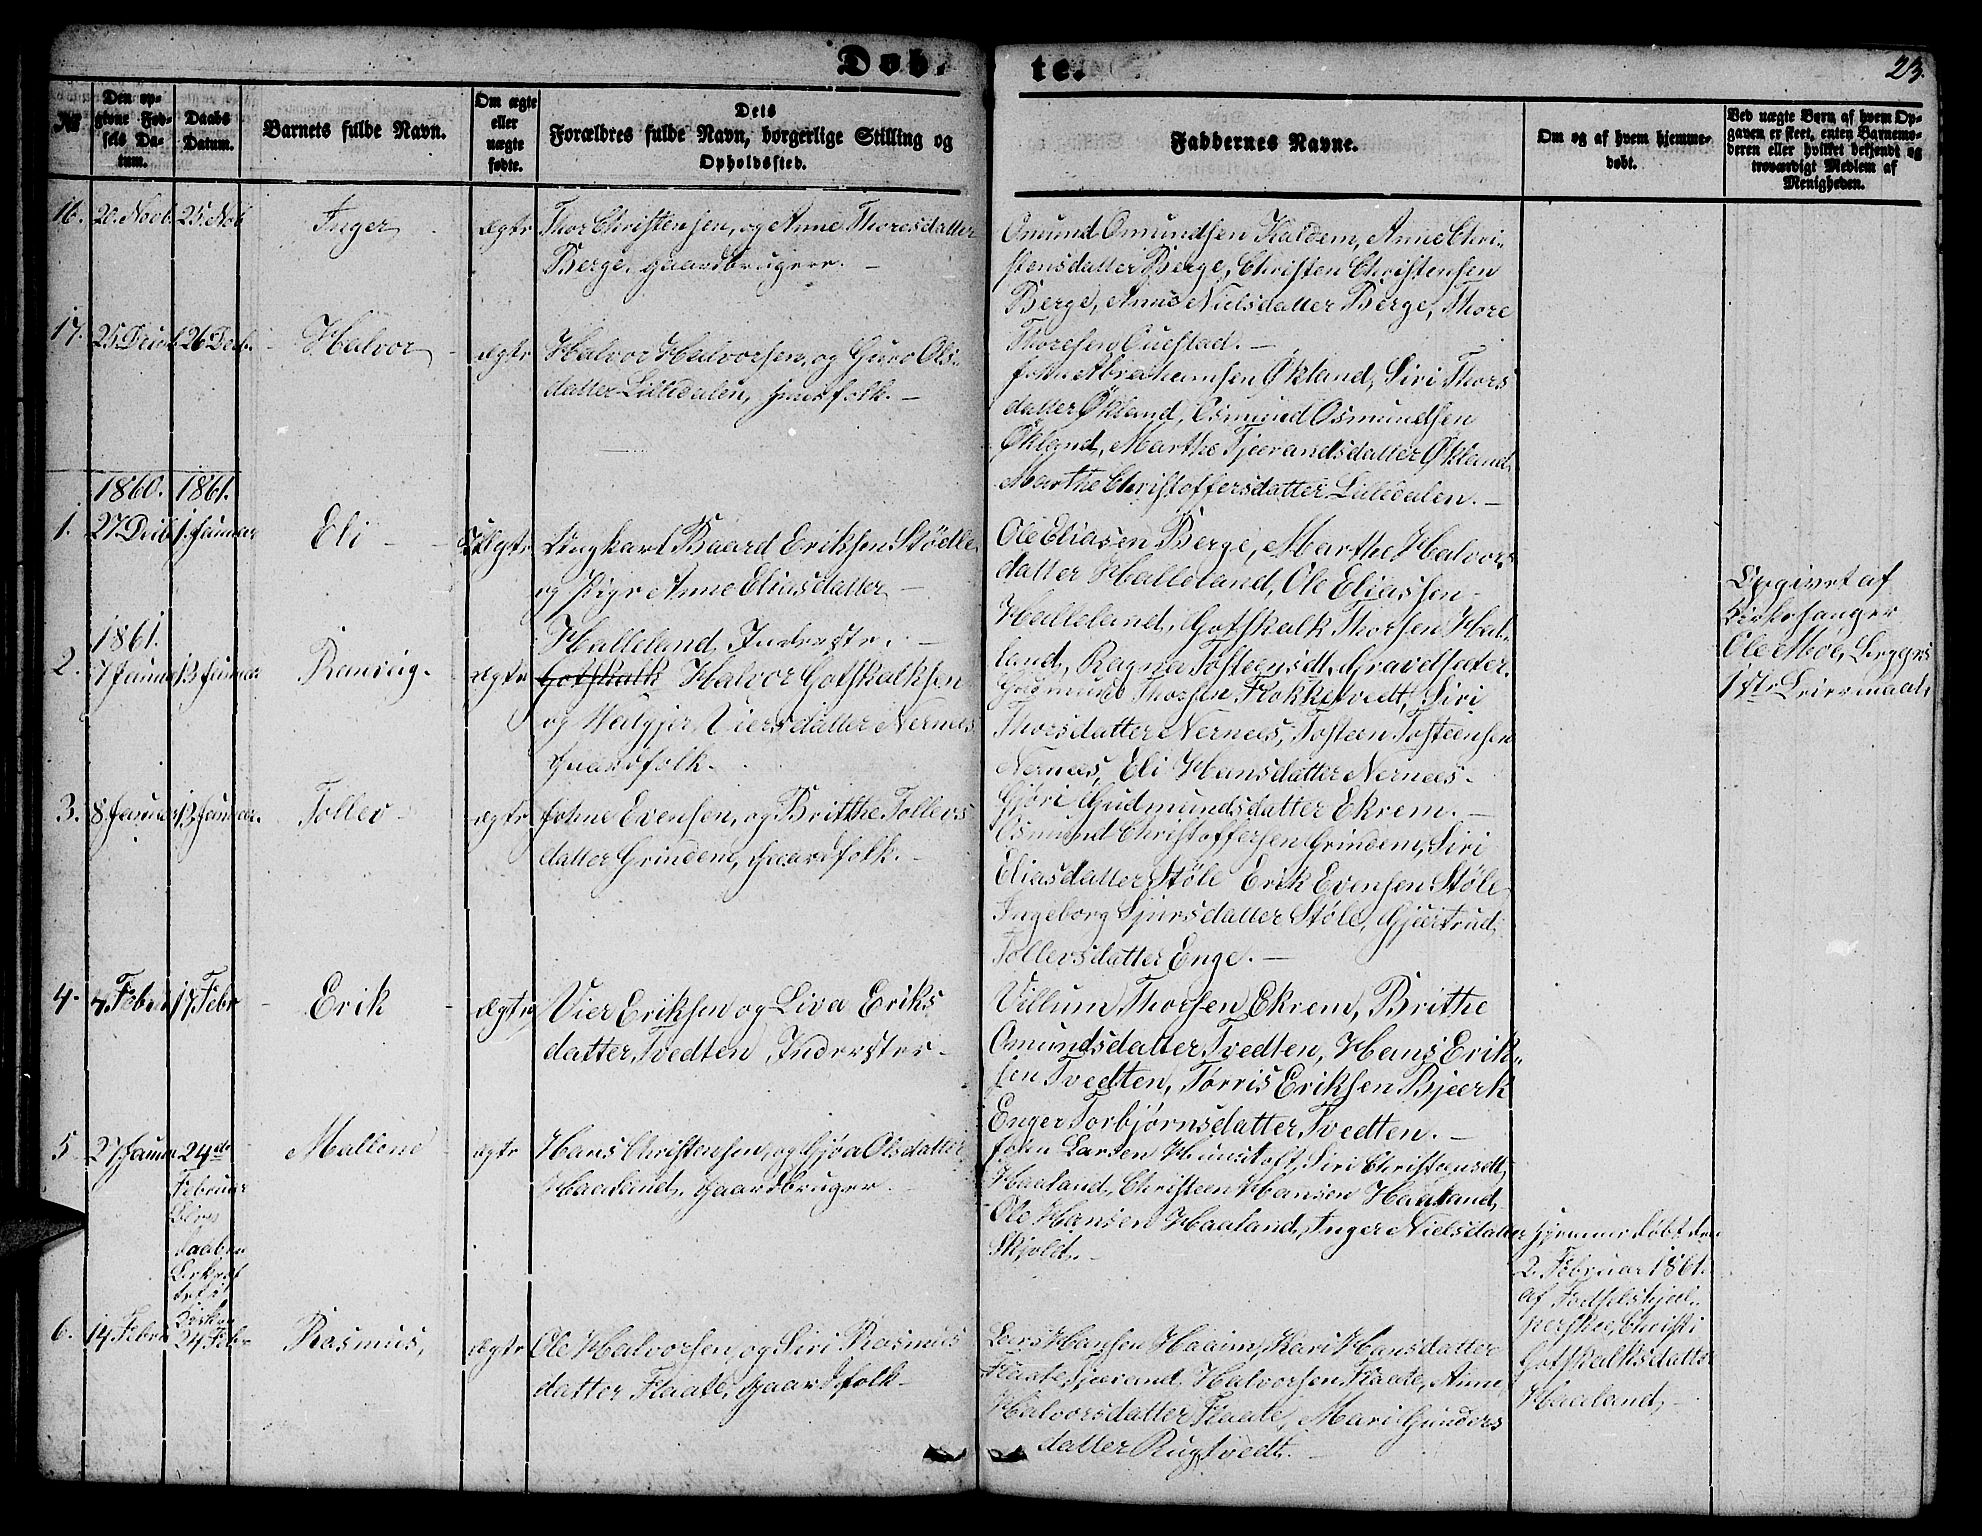 Døb. te. 23.
No
Den op-
givne Fød-
sels Da-
tum.
Daabs
Datum.
Barnets fulde Navn.
Om ægte
eller
uægte
fødte.
Dets
Forældres fulde Navn, borgerlige Stilling og
Opholdssted.
Faddernes Navne.
Om og af hvem hjemme-
døbt.
Ved uægte Børn af hvem Op-
gaven er skeet, enten Barnemo-
deren eller hvilket bekjendt og
troværdigt Medlem af
Menigheden.
16.
20. Novb.
25. Nov
Inger
ægte
Thor Christensen, og Anne Thoresdatter
Berge, gaardbrugere. —
Omund Omundsen Kaldem, Anne Chri-
stensdatter Berge, Christen Christensen
Berge, Anne Nielsdatter Berge, Thore
Thoresen Questad. —
17.
25 Decb.
26 Decb.
Halvor
ægte
Halvor Halvorsen, og Guro Ols-
datter Lilledalen, huusfolk. —
John Abrahamsen Økland, Siri Thors
datter Økland, Osmund Osmundsen
Økland, Marthe Tjerandsdatter Økland,
Marthe Christoffersdatter Lilledalen. —
1860. 1861.
1.
27 Decb.
1. Januar
Eli
Uægte
Ungkarl Baard Eriksen Støelle
og Pige Anne Eliasdatter
Halleland, Inderste. —
Ole Eliasen Berge, Marthe Halvors
datter Halleland, Ole Eliassen
Halleland, Gotskalk Thorsen Hal-
land, Ragna Tosteensdt. Gravelsæter.
Opgivet af
Kirkesanger
Ole Moe, Begges
1ste Leiermaal.
1861.
2.
7 Januar
13 Januar
Ranveig.
ægte
Gotskalk Halvor Gotskalksen
og Valgjer Viersdatter Nernees
Gaardfolk.
Gudmund Thorsen Flokketvedt, Siri
Thorsdatter Nernees, Tosteen Tosteensen
Nernees, Eli Hansdatter Nernees-
Gjøri Gudmundsdatter Ekrem. —
3.
8 Januar
13 Januar.
Tollev
ægte
Johne Evensen, og Britthe Tollevs
datter Grindem, Gaardfolk. —
Osmund Christoffersen Grindem, Siri
Eliasdatter Støle Erik Evensen Støle,
Ingeborg Sjursdatter Støle, Gjertrud
Tollevsdatter Enge. —
4.
Febru
17 Febr
Erik
ægte
Vier Eriksen og Liva Eriks
datter Tvedten, Inderster.
Villum Thorsen Ekrem, Brithe
Omundsdatter Tvedten, Hans Erik-
sen Tvedten, Tørris Eriksen Bjerk
Enger Torbjørnsdatter Tvedten. —
5
27 Janua
24de
Februar
Daaben
Kirken
Maliene
ægte
Hans Christensen, og Gjøa Olsdatter
Haaland, Gaardbruger.
John Larsen Hunstoft, Siri Christensdt.
Haaland, Christeen Hansen Haaland,
Ole Hansen Haaland, Inger Nielsdatter
Skjold. —
Hjemmedøbt den
2. Februar 1861.
af Fødselshjæl-
perske Christi
Gotskalksdatter
Haaland.
6.
14 Febru
24 Febr
Rasmus,
ægte
Ole Halvorsen, og Siri Rasmus
datter Flaate, Gaardfolk
Lars Hansen Haaim, Kari Hansdatter
Flaate, Tjerand Halvorsen Flaate, Anne
Halvorsdatter Flaate, Mari Gunders
datter Rugtvedt.